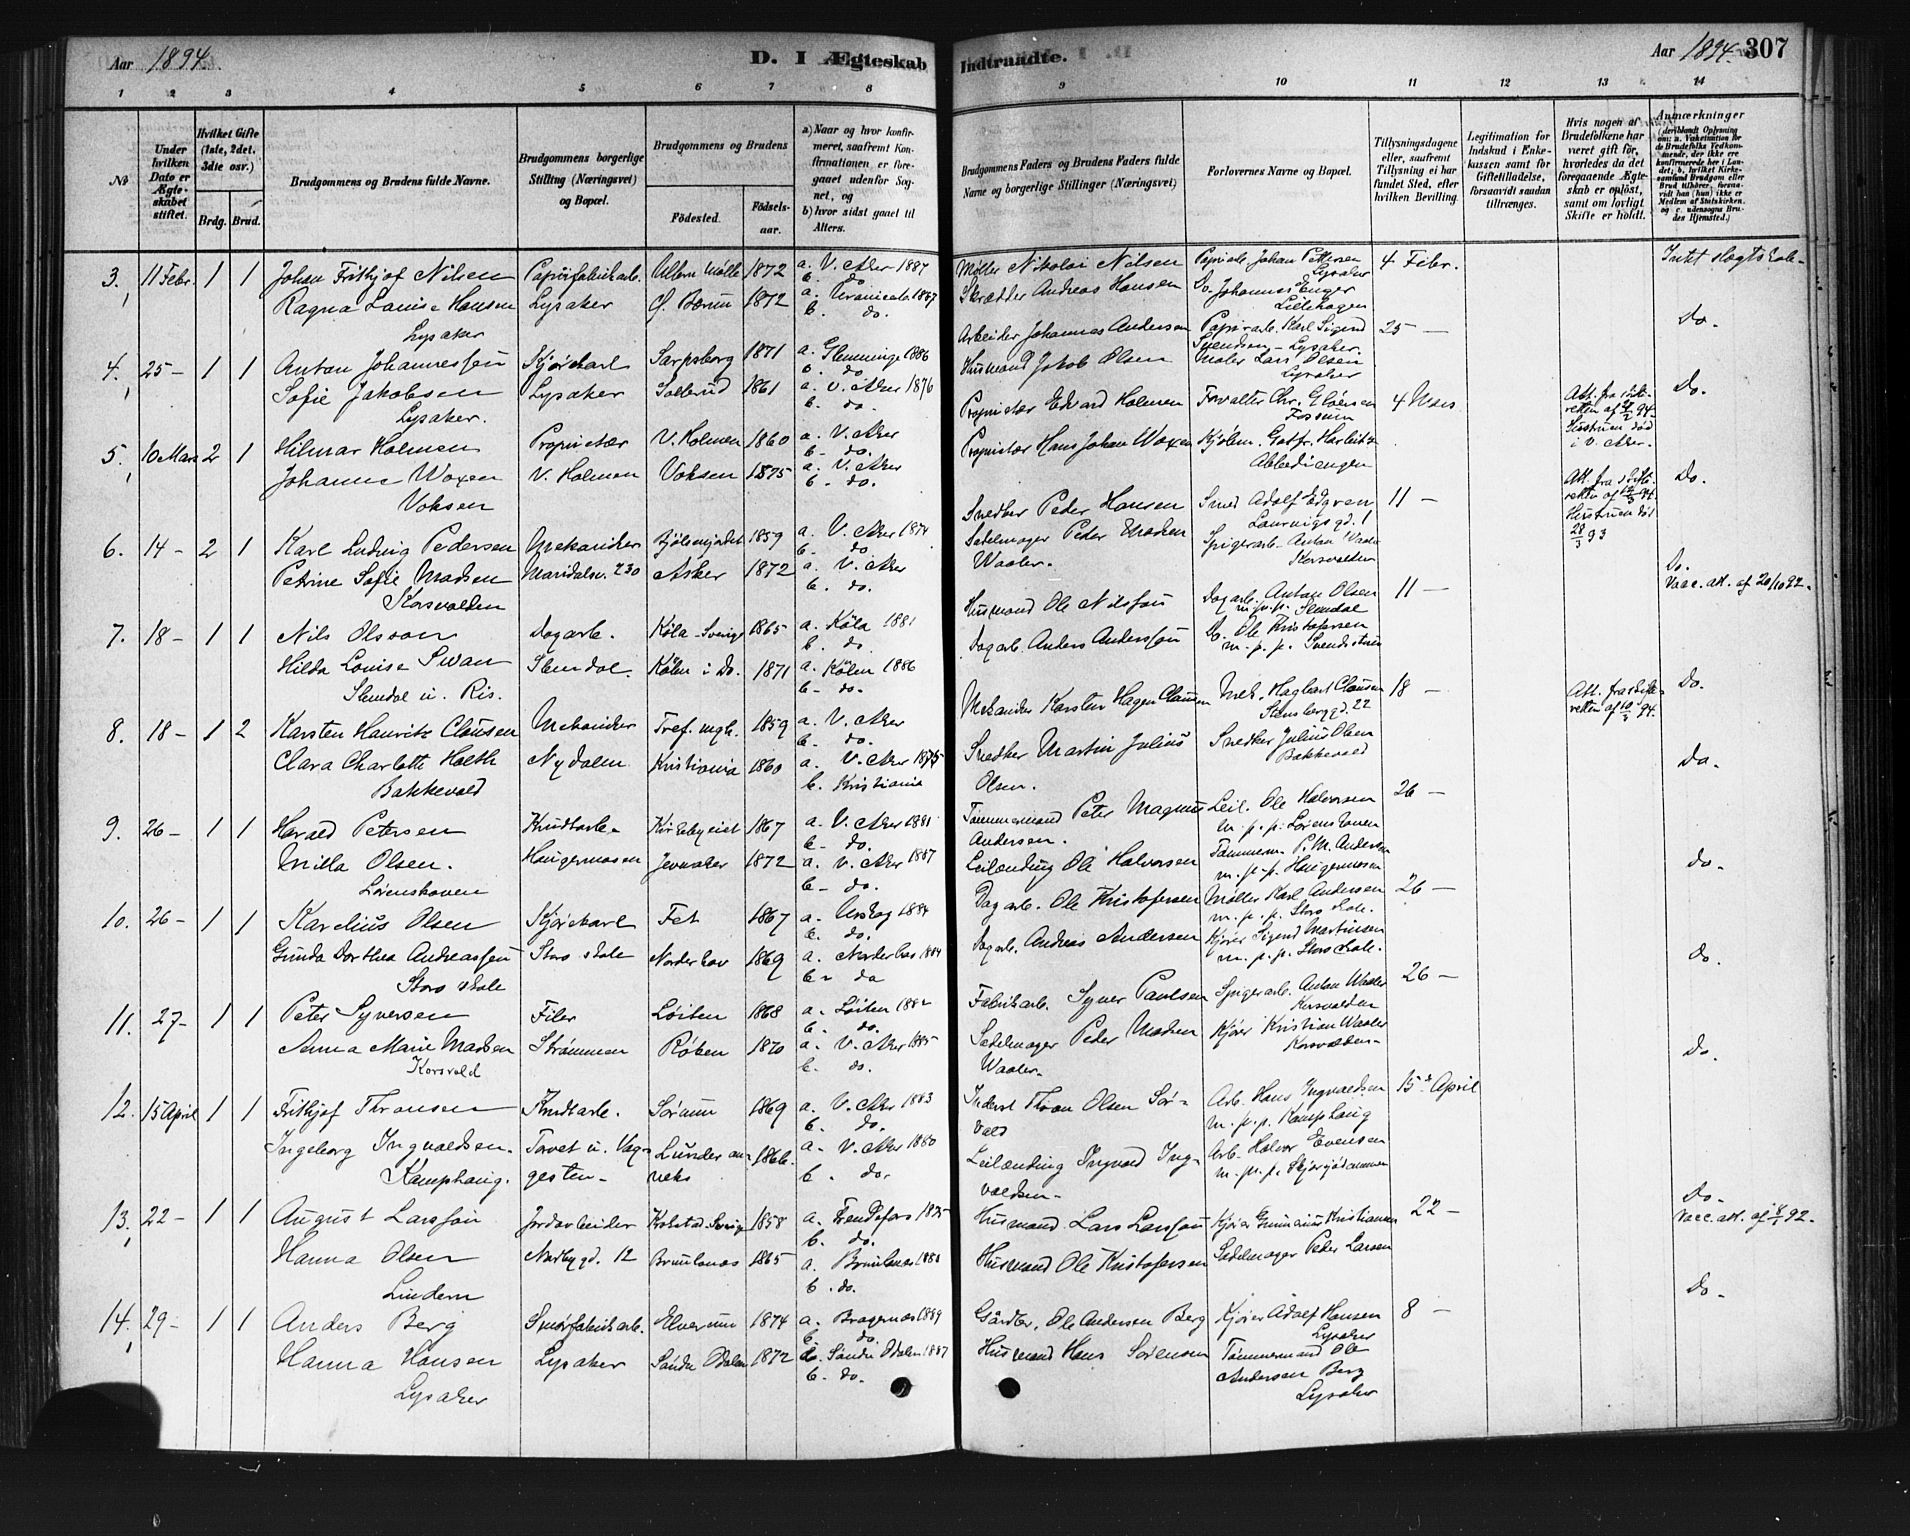 Aar 1894.
D. I Ægteskab
Indtraadte.
Aar 1894. 307
1 2 3 4 5 6 7 8 9 10 11 12 13 14
No
Under hvilken Dato er Ægteskabet stiftet.
Hvilket Gifte (1ste, 2det, 3die osv.)
Brdg. Brud.
Brudgommens og Brudens fulde Navne.
Brudgommens borgerlige Stilling (Næringsvei) og Bopæl.
Brudgommens og Brudens
Fødested. Fødselsaar.
a) Naar og hvor konfirmeret, saafremt Konfirmationen er foregaaet udenfor Sognet, og
b) hvor sidst gaaet til Alters.
Brudgommens Faders og Brudens Faders fulde Navne og borgerlige Stillinger (Næringsvei)
Forlovernes Navne og Bopæl.
Tillysningsdagene eller, saafremt Tillysning ei har fundet Sted, efter hvilken Bevilling.
Legitimation for Indskud i Enkekassen samt for Giftetilladelse, forsaavidt saadan tiltrænges.
Hvis nogen af Brudefolkene har været gift før, hvorledes da det foregaaende Ægteskab er opløst, samt om lovligt Skifte er holdt.
Anmærkninger
3. 11 Febr. 1 1 Johan Frithjof Nilsen Papirfabrikarb. Ullern Mølle 1872 a. V. Aker 1887 Møller Nikolai Nilsen Papirarb. Johan Pettersen Lysaker 4 Febr. Intet Slægtskab
b. do
Ragna Louise Hansen Lysaker Ø. Bærum 1872 a. Uranienb. 1887 Skrædder Andreas Hansen Do. Johannes Enger Lilehagen
Lysaker b. do.
4. 25 - 1 1 Anton Johannessen Kjørekarl Sarpsborg 1871 a. Glemminge 1886 Arbeider Johannes Andersen Papirarb. Karl Sigurd Svendsen - Lysaker 25 - Do.
b. do
Sofie Jakobsen Lysaker Sollerud 1861 a. V. Aker 1876 Husmand Jakob Olsen Maler Lars Olsen Lysaker
Lysaker. b. do.
5. 10 Mars 2 1 Hilmar Holmen Proprietær V. Holmen 1860 a. V. Aker Proprietær Edvard Holmen Forvalter Chr. Gløersen Fossum 4 Mars Att. fra Skifteretten af 94. Hustruen død i V. Aker. Do.
b - do.
Johanne Woxen V. Holmen Voksen 1875 a. V. Aker Proprietær Hans Johan Woxen Kjøbm. Gotfr. Harbitz Abbediengen
Voksen b. do.
6. 14 - 2 1 Karl Ludvig Pedersen Mekaniker Bjølsenjordet 1859 a. V. Aker 1874 Snedker Peder Hansen Smed Adolf Edgren Laurvigsgd. 1 11 - Att. fra Skifteretten af 94. Hustruen død 93 Do.
b - do
Petrine Sofie Madsen Maridalsv. 230 Asker 1872 a. V. Aker Sadelmager Peder Madsen Waaler. Spigerarb. Anton Waaler Korsvolden
Korsvolden b. do.
7. 18 - 1 1 Nils Olsson Dagarb. Köla - Sverige 1865 a. Köla 1881 Husmand Ole Nilsson Dagarb. Anton Olsen m.p.p. Slemdal 11 - Do. Vacc. att. af 20/10 92.
b. do.
Hilda Louise Swan Slemdal Kölen i Do. 1871 a. Kölen 1886 Dagarb. Anders Andersson Do. Ole Kristofersen m.p.p. Svendstuen
Slemdal u. Ris. b - do.
8. 18 - 1 2 Karsten Hauritz Clausen Mekaniker Tref. mgh. 1859 a. V. Aker Mekaniker Karsten Hagen Clausen Mek. Hagbart Clausen Stensberggd. 22 18 - Att. fra Skifteretten af 94. Do.
b - do.
Clara Charlotte Holth Nydalen Kristiania 1860 a. V. Aker 1875 Snedker Martin Julius Olsen. Snedker Julius Olsen Bakkevold
Bakkevold b. Kristiania
9. 26 - 1 1 Harald Petersen Krudtarb. Kirkebyeiet 1867 a. V. Aker 1881 Tømmermand Peter Magnus Andersen. Leil. Ole Halvorsen m.p.p. Lørenskoven 26 - Do.
b - do.
Milla Olsen. Haugermosen Jevnaker 1872 a. V. Aker 1887 Leilænding Ole Halvorsen Tømmerm. P. M. Andersen m.p.p. Haugermosen
Lørenskoven b - do.
10. 26 - 1 1 Karelius Olsen Kjørekarl Fet 1867 a. Urskog 1884 Dagarb. Ole Kristofersen Møller Karl Andersen m.p.p. Storo Kale. 26 - Do.
b. do.
Gunda Dorthea Andreassen Storo skole Norderhov 1869 a. Norderhov 1884 Dagarb. Andreas Andersen Kjører Sigurd Martinsen m.p.p. Storo skole.
Storo skole b - do
11. 27 - 1 1 Peter Syversen Filer Løiten 1868 a. Løiten 1882 Fabrikarb. Syver Paulsen Spigerarb. Anton Waaler Korsvolden 26 - Do.
b. do.
Anna Marie Madsen Strømmen Røken 1870 a. V. Aker 1885 Sadelmager Peder Madsen Waaler. Kjører Kristian Waaler Korsvolden
Korsvold b. do.
12. 15 April 1 1 Frithjof Thronsen Krudtarb. Sørum 1869 a. V. Aker 1883 Inderst Thron Olsen Sørvald Arb. Hans Ingvaldsen m.p.p. Kamphaug 15de April Do.
b. do.
Ingeborg Ingvaldsen. Tovet u. Vaggesten - Lunder anneks 1866 a. V. Aker 1880 Leilænding Ingvald Ingvaldsen - Arb. Halvor Evensen m.p.p.
Kamphaug. b. do.
13. 22 - 1 1 August Larsson Jordarbeider Sverige 1858 a. 1875 Husmand Lars Larsson Kjører Gunerius Kristiansen 22 - Do. Vacc. att. af 92.
b. do.
Hanna Olsen Norbygd. 12 Brunlanæs 1865 a. Brunlanæs 1881 Husmand Ole Kristofersen Sadelmager Peder Larsen
Lindern b. do.
14. 29 - 1 1 Anders Berg Smørfabrikarb. Elverum 1874 a. Bragernæs 1889 Gårdbr. Ole Andersen Berg Kjører Adolf Hansen Lysaker 8 - Do.
b. do.
Hanna Hansen Lysaker Søndre Odalen 1872 a. Søndre Odalen 1887 Husmand Hans Sørensen Tømmermand Ole Andersen Berg Lysaker
Lysaker b. do.